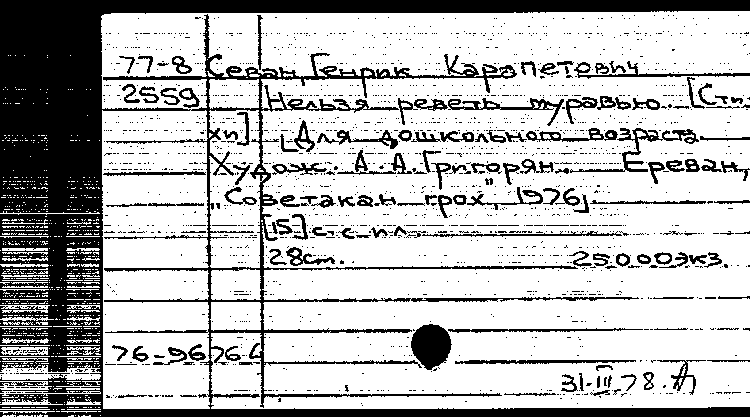 77-8 Севан, Генрик Карапетович
2559 Нельзя реветь муравью. [Сти-
хи]. [Для дошкольного возраста.
Худож. А. А. Григорян. Ереван,
„Советакан грох", 1976].
[15] с. с ил.
28 см. 25000 экз.
76-96764
31-III-78.